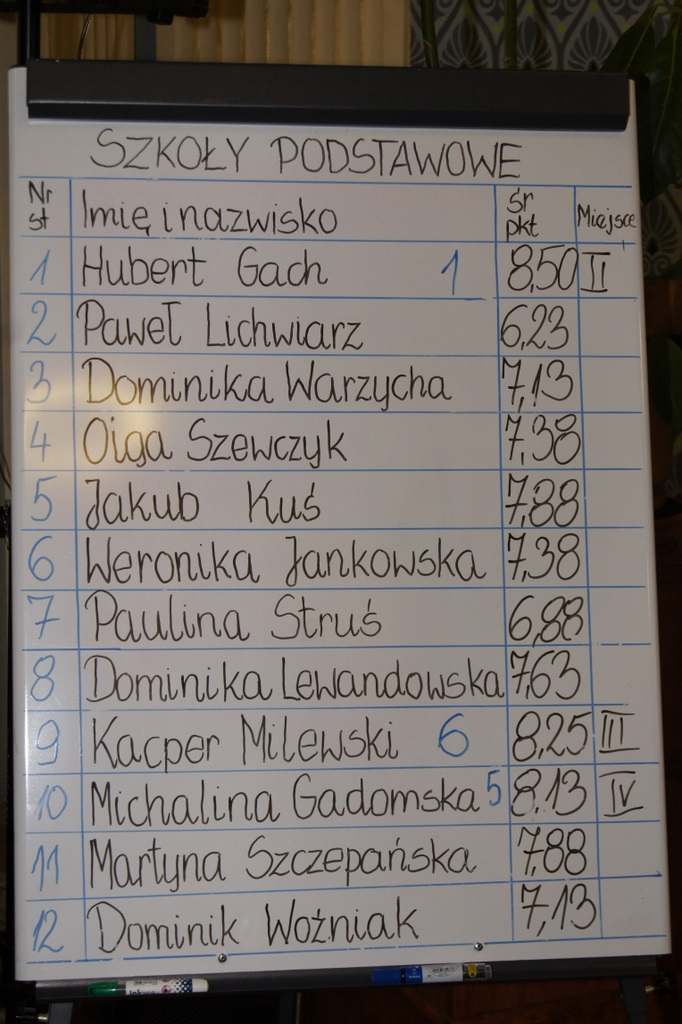 SZKOŁY PODSTAWOWE
Nr st Imię i nazwisko śr pkt Miejsce
1 Hubert Gach 1 8,50 II
2 Paweł Lichwiarz 6,23
3 Dominika Warzycha 7,13
4 Olga Szewczyk 7,38
5 Jakub Kuś 7,88
6 Weronika Jankowska 7,38
7 Paulina Struś 6,88
8 Dominika Lewandowska 7,63
9 Kacper Milewski 6 8,25 III
10 Michalina Gadomska 5 8,13 IV
11 Martyna Szczepańska 7,88
12 Dominik Woźniak 7,13